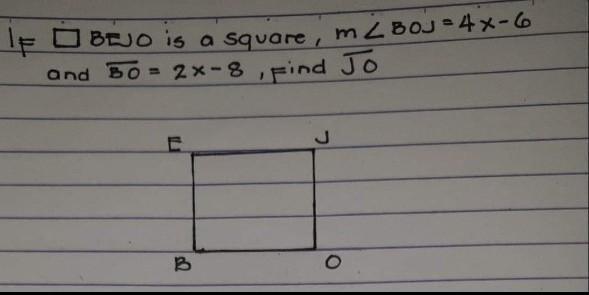 If □ BEJO is a square, m∠BOJ=4x-6
and B̅O̅ = 2x-8, find J̅O̅
E J
B O